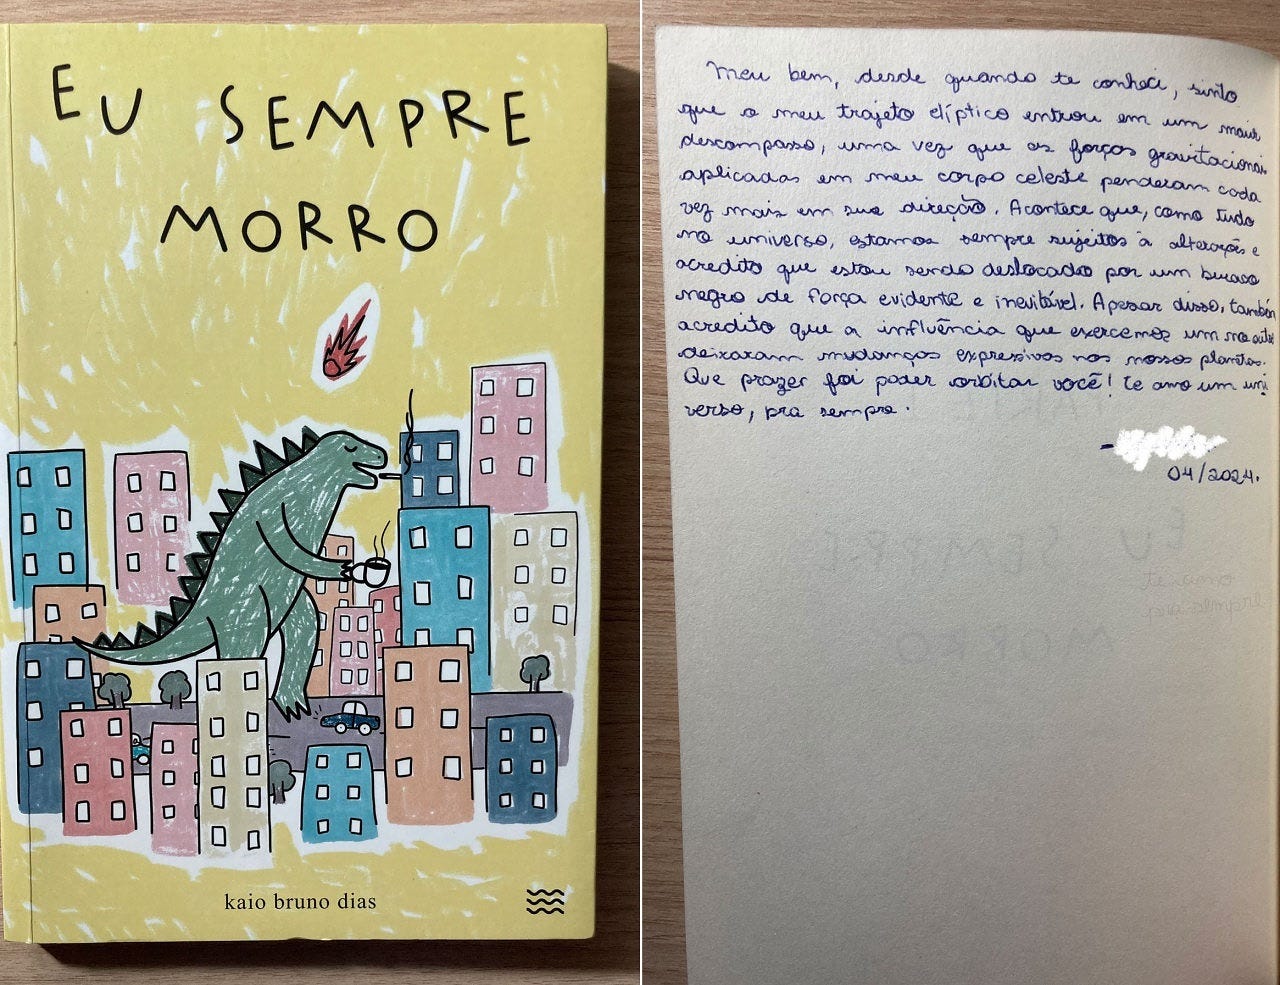 EU SEMPRE
MORRO
kaio bruno dias
Meu bem, desde quando te conheci, sinto
que o meu trajeto elíptico entrou em um maior
descompasso, uma vez que as forças gravitacionais
aplicadas em meu corpo celeste penderam cada
vez mais em sua direção. Acontece que, como tudo
no universo, estamos sempre sujeitos à alterações e
acredito que estou sendo deslocado por um buraco
negro de força evidente e inevitável. Apesar disso, também
acredito que a influência que exercemos um no outro
deixaram mudanças expressivas nos nossos planetas.
Que prazer foi poder orbitar você! te amo um uni
verso, pra sempre.
04/2024.
EU SEMPRE
MORRO